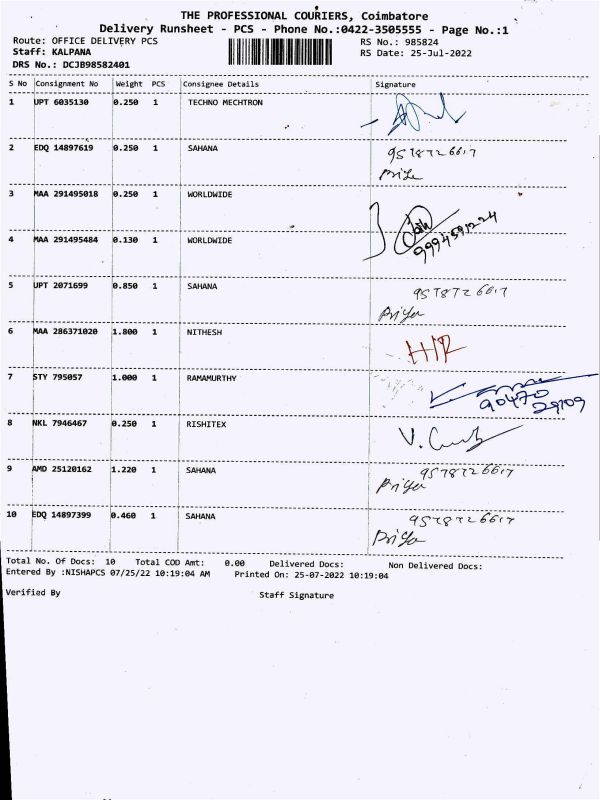 THE PROFESSIONAL COURIERS, Coimbatore
Delivery Runsheet - PCS - Phone No.:0422-3505555 - Page No.:1
Route: OFFICE DELIVERY PCS RS No.: 985824
Staff: KALPANA RS Date: 25-Jul-2022
DRS No.: DCJB98582401
S No Consignment No Weight PCS Consignee Details Signature
1 UPT 6035130 0.250 1 TECHNO MECHTRON
2 EDQ 14897619 0.250 1 SAHANA 9578726617
Priya
3 MAA 291495018 0.250 1 WORLDWIDE
4 MAA 291495484 0.130 1 WORLDWIDE 9994591224
5 UPT 2071699 0.850 1 SAHANA 9578726617
Priya
6 MAA 286371020 1.800 1 NITHESH
7 STY 795057 1.000 1 RAMAMURTHY 90470
29109
8 NKL 7946467 0.250 1 RISHITEX
9 AMD 25120162 1.220 1 SAHANA 9578726617
Priya
10 EDQ 14897399 0.460 1 SAHANA 9578726617
Priya
Total No. Of Docs: 10 Total COD Amt: 0.00 Delivered Docs: Non Delivered Docs:
Entered By :NISHAPCS 07/25/22 10:19:04 AM Printed On: 25-07-2022 10:19:04
Verified By Staff Signature